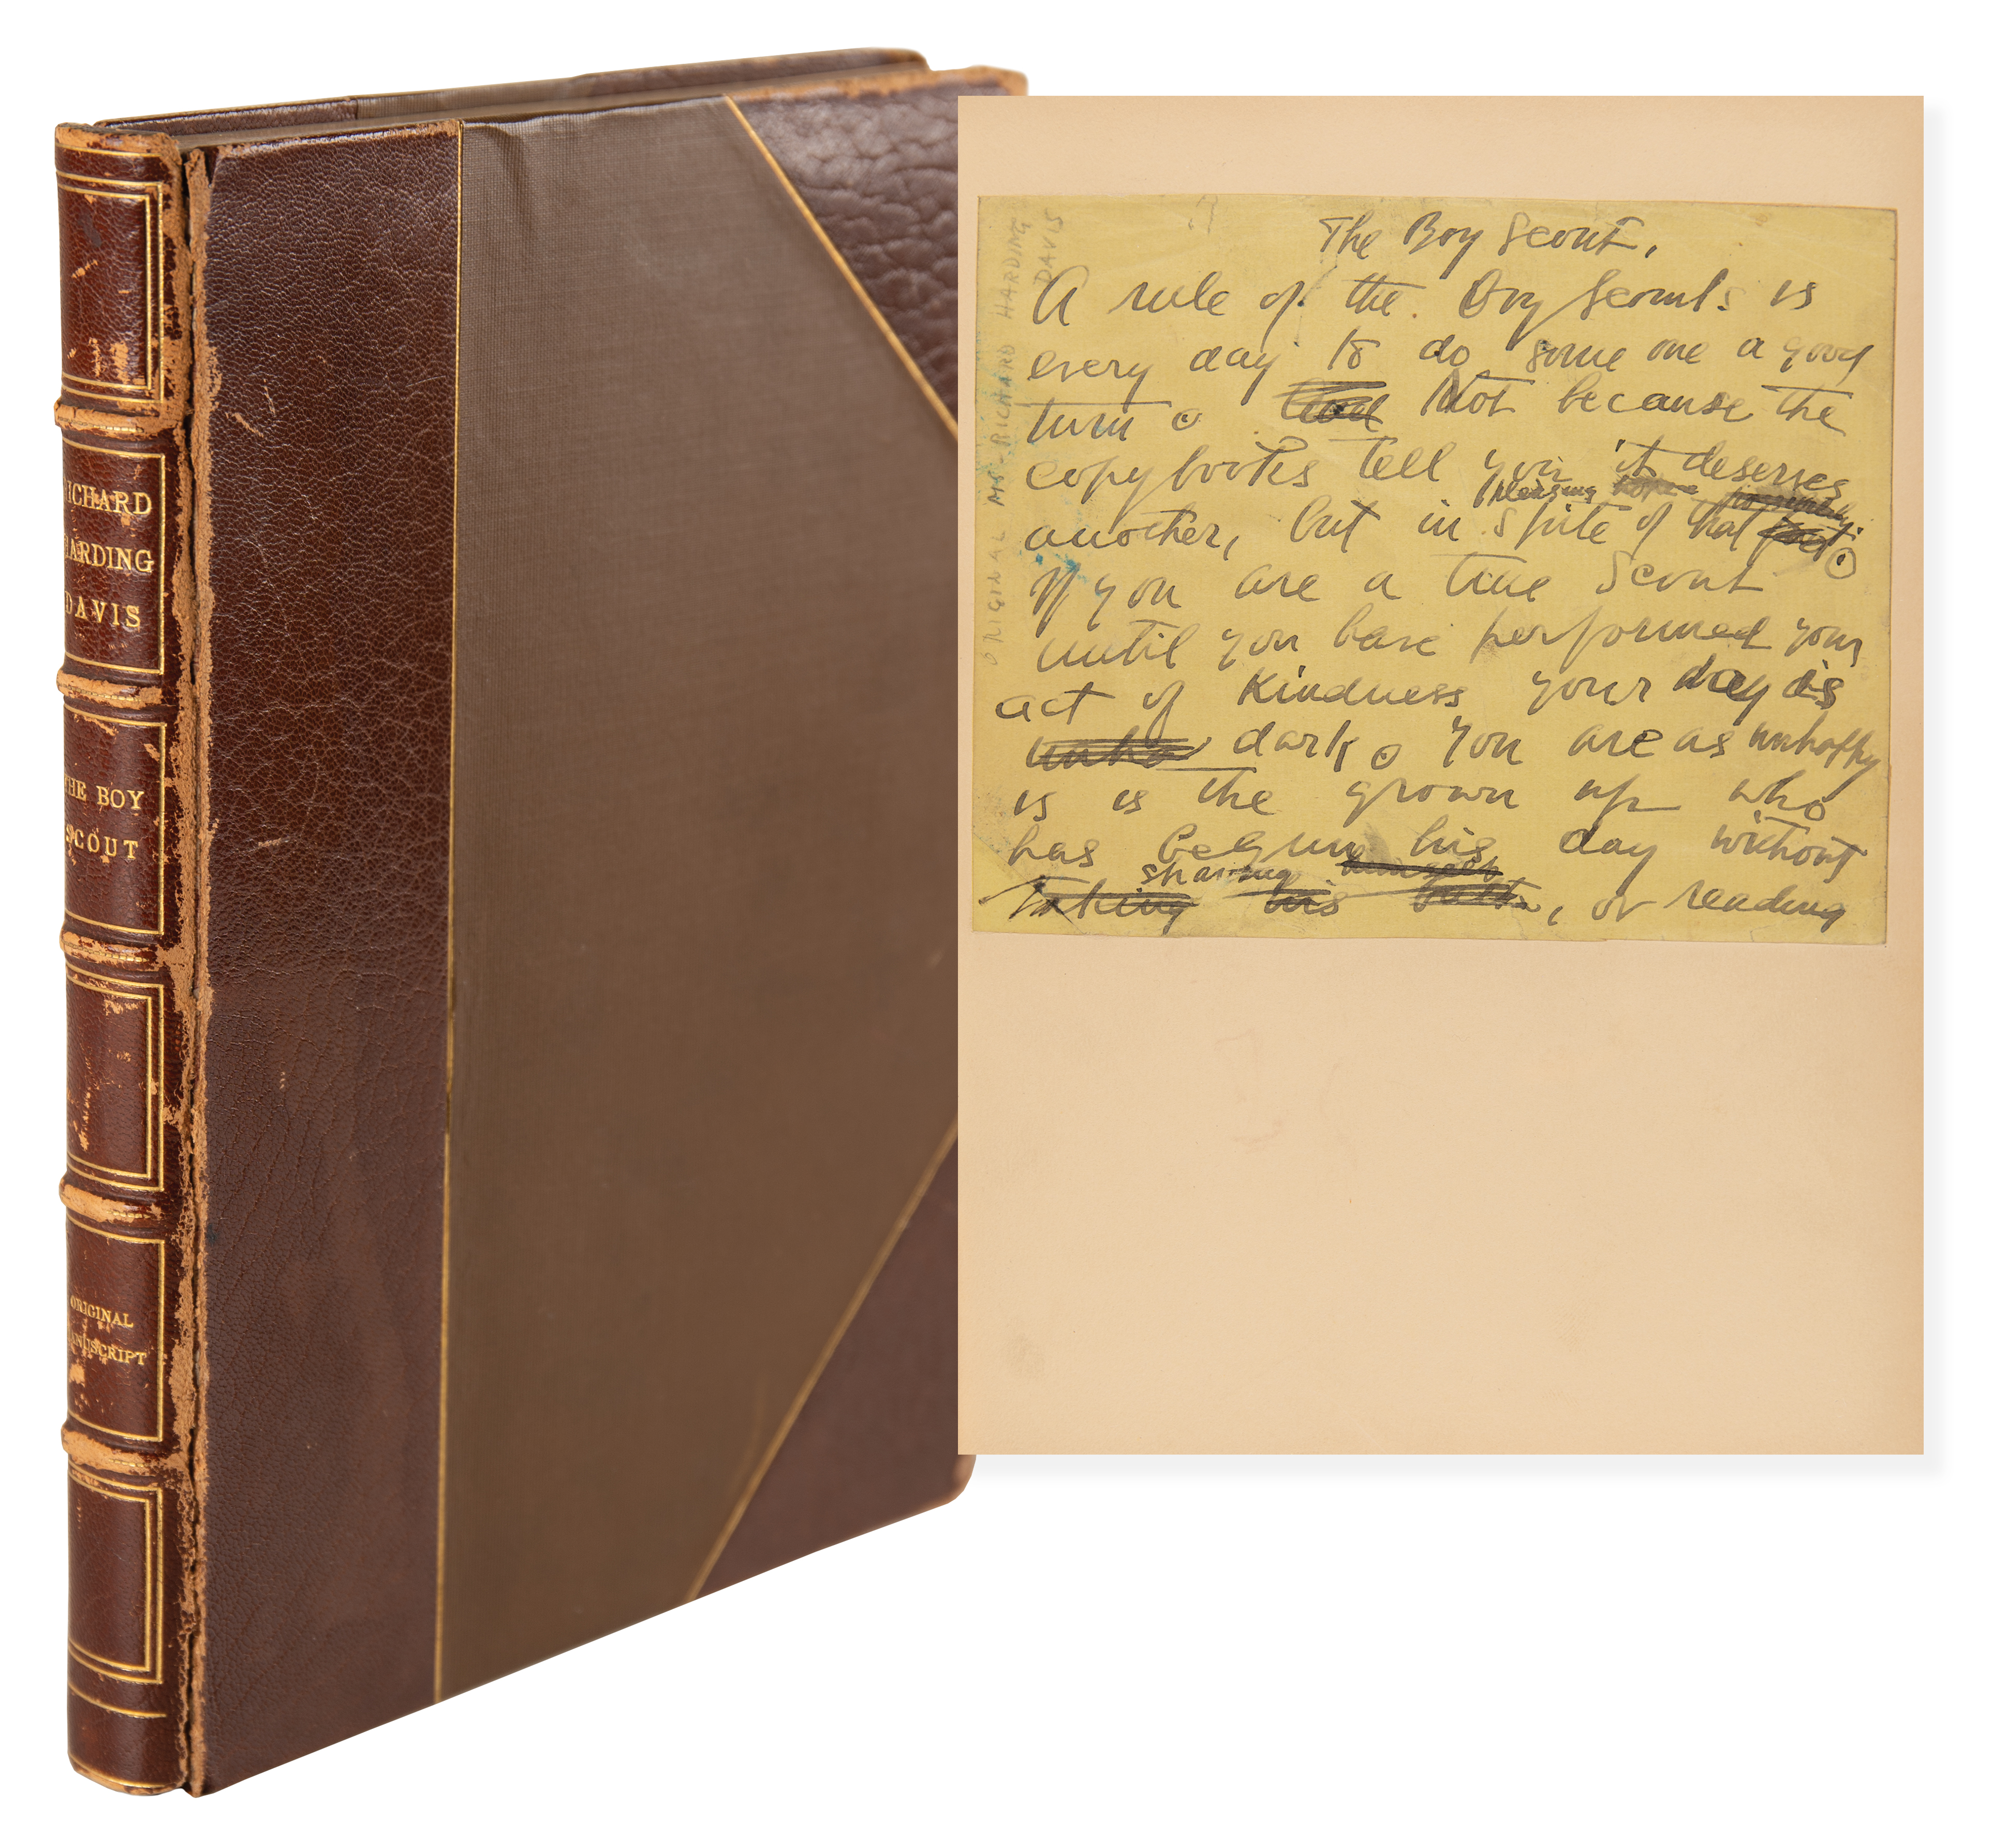 RICHARD
HARDING
DAVIS
THE BOY
SCOUT
ORIGINAL
MANUSCRIPT
ORIGINAL MS - RICHARD HARDING
DAVIS
The Boy Scout.
A rule of the Boy Scouts is
every day to do some one a good
turn. Not because the
copybooks tell you it deserves
pleasing
another, but in spite of that fact.
If you are a true Scout
until you have performed your
act of kindness your day is
unha dark. You are as unhappy
is is the grown up who
has begun his day without
shaving himself
taking his bath, or reading